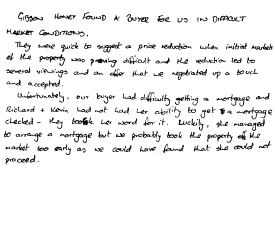 GIBSON HONEY FOUND A BUYER FOR US IN DIFFICULT
MARKET CONDITIONS.
They were quick to suggest a price reduction when initial market
of the property was proving difficult and the reduction led to
several viewings and an offer that we negotiated up a touch
and accepted.
Unfortunately, our buyer had difficulty getting a mortgage and
Richard + Kevin had not had her ability to get a mortgage
checked - they took her word for it. Luckily, she managed
to arrange a mortgage but we probably took the property off the
market too early as we could have found that she could not
proceed.